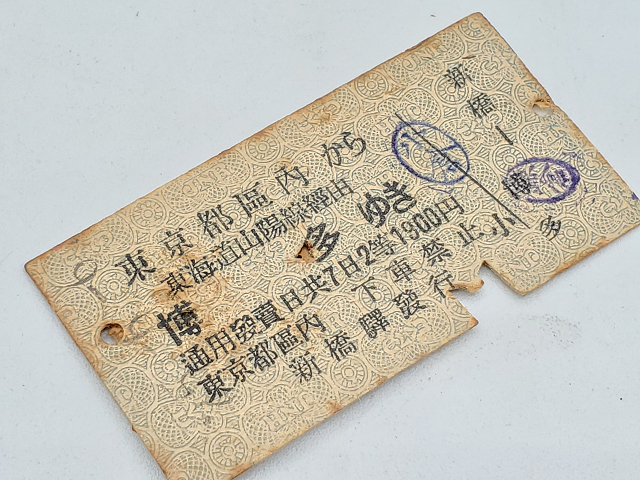 東京都區內から
東海道山陽線經由
博多ゆき
通用發賣日共7日2等1300円
東京都區內 下車禁止
新橋驛發行
新橋
博多
小